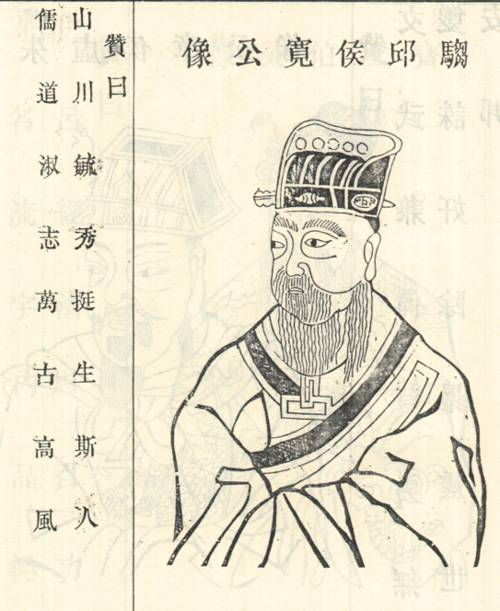 騶邱侯寬公像
贊曰
山川毓秀挺生斯人
儒道淑志萬古高風